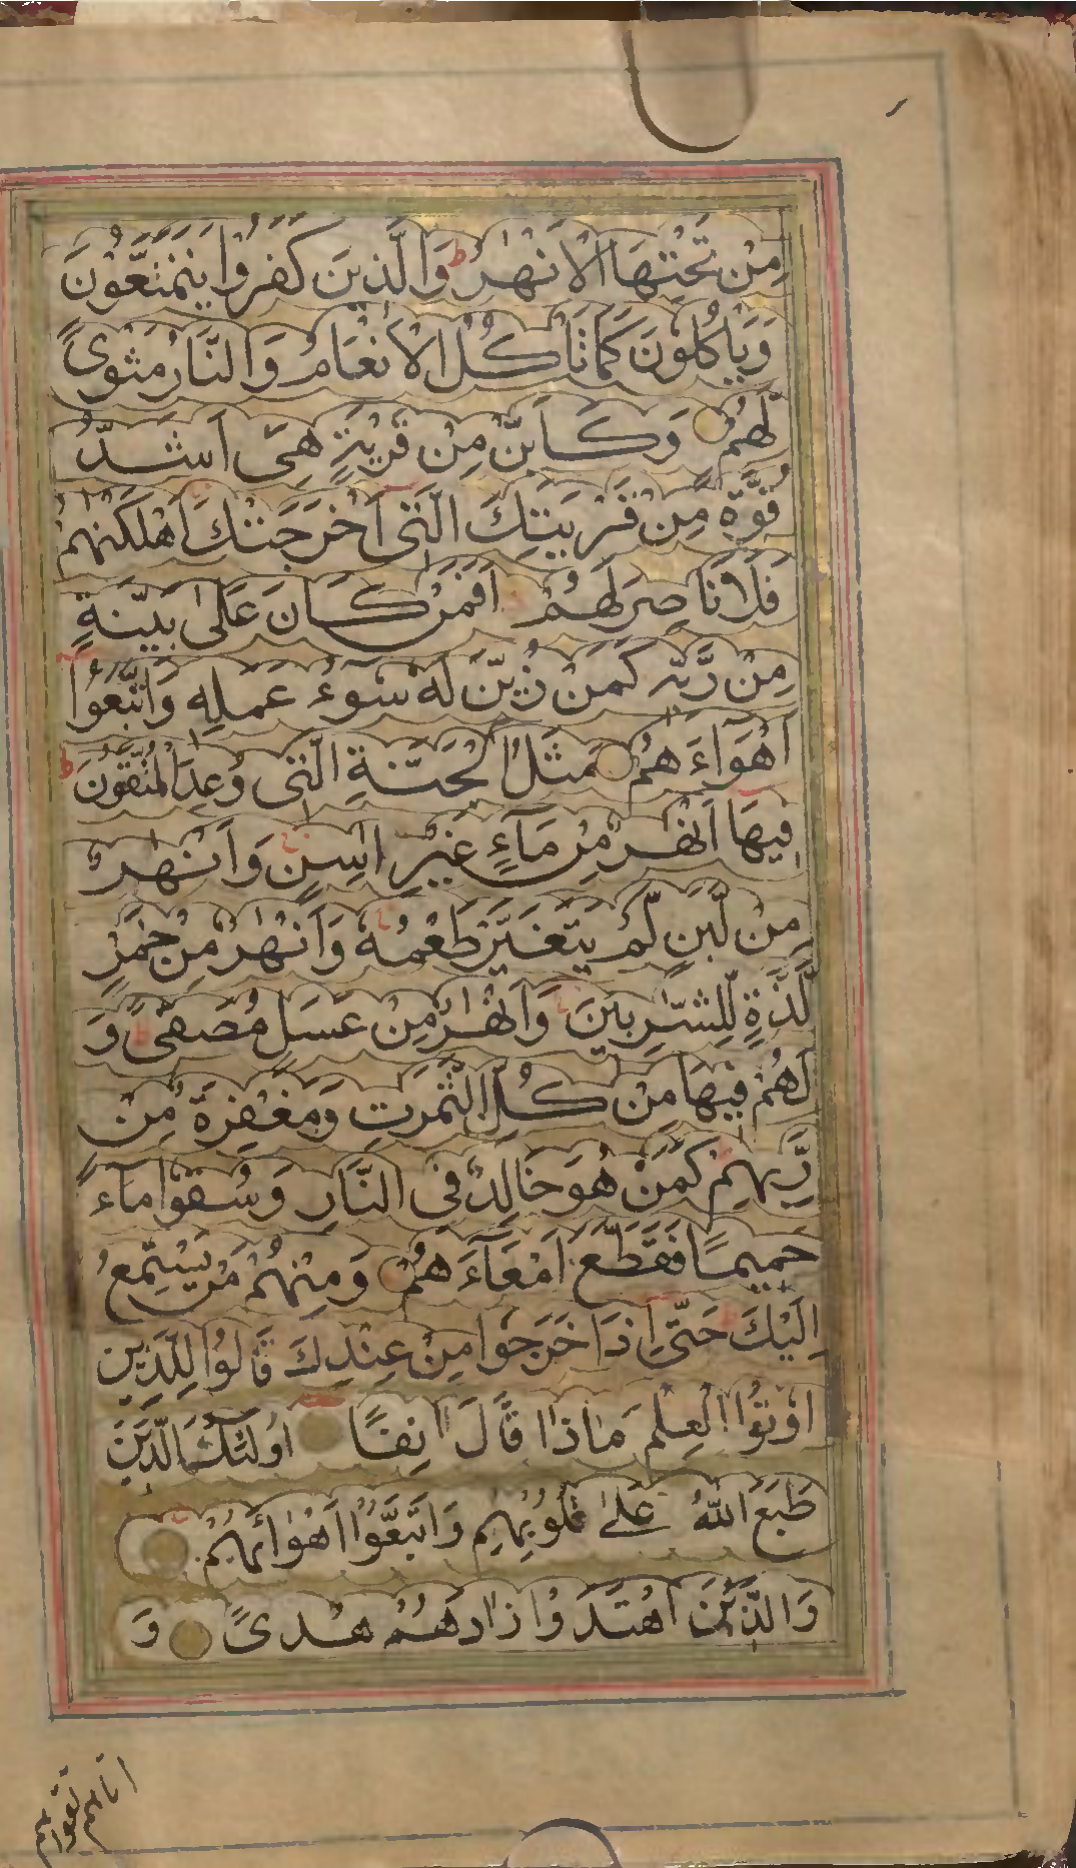 مِنْ تَحْتِهَا الْاَنْهٰرُ ط وَالَّذِينَ كَفَرُوا يَتَمَتَّعُونَ
وَيَأْكُلُونَ كَمَا تَأْكُلُ الْاَنْعَامُ وَالنَّارُ مَثْوًى
لَهُمْ وَكَاَيِّنْ مِنْ قَرْيَةٍ هِىَ اَشَدُّ
قُوَّةً مِنْ قَرْيَتِكَ الَّتِى اَخْرَجَتْكَ اَهْلَكْنٰهُمْ
فَلَا نَاصِرَ لَهُمْ اَفَمَنْ كَانَ عَلٰى بَيِّنَةٍ
مِنْ رَّبِّهٖ كَمَنْ زُيِّنَ لَهٗ سُوٓءُ عَمَلِهٖ وَاتَّبَعُوا
اَهْوَاءَهُمْ مَثَلُ الْجَنَّةِ الَّتِى وُعِدَ الْمُتَّقُونَ ط
فِيهَا اَنْهٰرٌ مِنْ مَآءٍ غَيْرِ اٰسِنٍ وَاَنْهٰرٌ
مِنْ لَّبَنٍ لَّمْ يَتَغَيَّرْ طَعْمُهٗ وَاَنْهٰرٌ مِنْ خَمْرٍ
لَّذَّةٍ لِّلشّٰرِبِينَ وَاَنْهٰرٌ مِنْ عَسَلٍ مُصَفًّى وَ
لَهُمْ فِيهَا مِنْ كُلِّ الثَّمَرٰتِ وَمَغْفِرَةٌ مِنْ
رَّبِّهِمْ كَمَنْ هُوَ خَالِدٌ فِى النَّارِ وَسُقُوا مَآءً
حَمِيمًا فَقَطَّعَ اَمْعَآءَهُمْ وَمِنْهُمْ مَنْ يَسْتَمِعُ
اِلَيْكَ حَتّٰى اِذَا خَرَجُوا مِنْ عِنْدِكَ قَالُوا لِلَّذِينَ
اُوتُوا الْعِلْمَ مَاذَا قَالَ اٰنِفًا اُولٰئِكَ الَّذِينَ
طَبَعَ اللّٰهُ عَلٰى قُلُوبِهِمْ وَاتَّبَعُوا اَهْوَائَهُمْ
وَالَّذِينَ اهْتَدَوْا زَادَهُمْ هُدًى وَ
اتاهم تقواهم